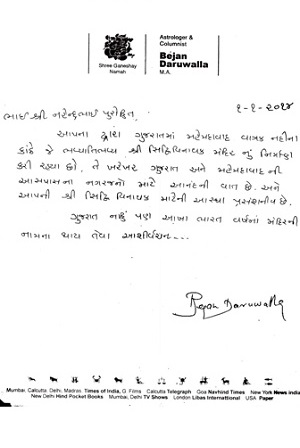 Shree Ganeshay
Namah
Astrologer &
Columnist
Bejan
Daruwalla
M.A.
૧-૧-૨૦૧૪
ભાઈ શ્રી નરેન્દ્રભાઈ પુરોહિત,
આપના દ્વારા ગુજરાતમાં મહેમદાવાદ વાત્રક નદીના
કાંઠે જે ભવ્યાતિભવ્ય શ્રી સિદ્ધિવિનાયક મંદિર નું નિર્માણ
કરી રહ્યા છો, તે ખરેખર ગુજરાત અને મહેમદાવાદ ની
આસપાસના નગરજનો માટે આનંદની વાત છે. અને
આપની શ્રી સિદ્ધિ વિનાયક માટેની આસ્થા પ્રસંશનીય છે.
ગુજરાત નહીં પણ આખા ભારત વર્ષમાં મંદિરની
નામના થાય તેવા આશીર્વચન...
Bejan Daruwalla
Mumbai, Calcutta, Delhi, Madras Times of India, O. Films Calcutta Telegraph Goa Navhind Times New York News India
New Delhi Hind Pocket Books Mumbai, Delhi TV Shows London Libas International USA Paper